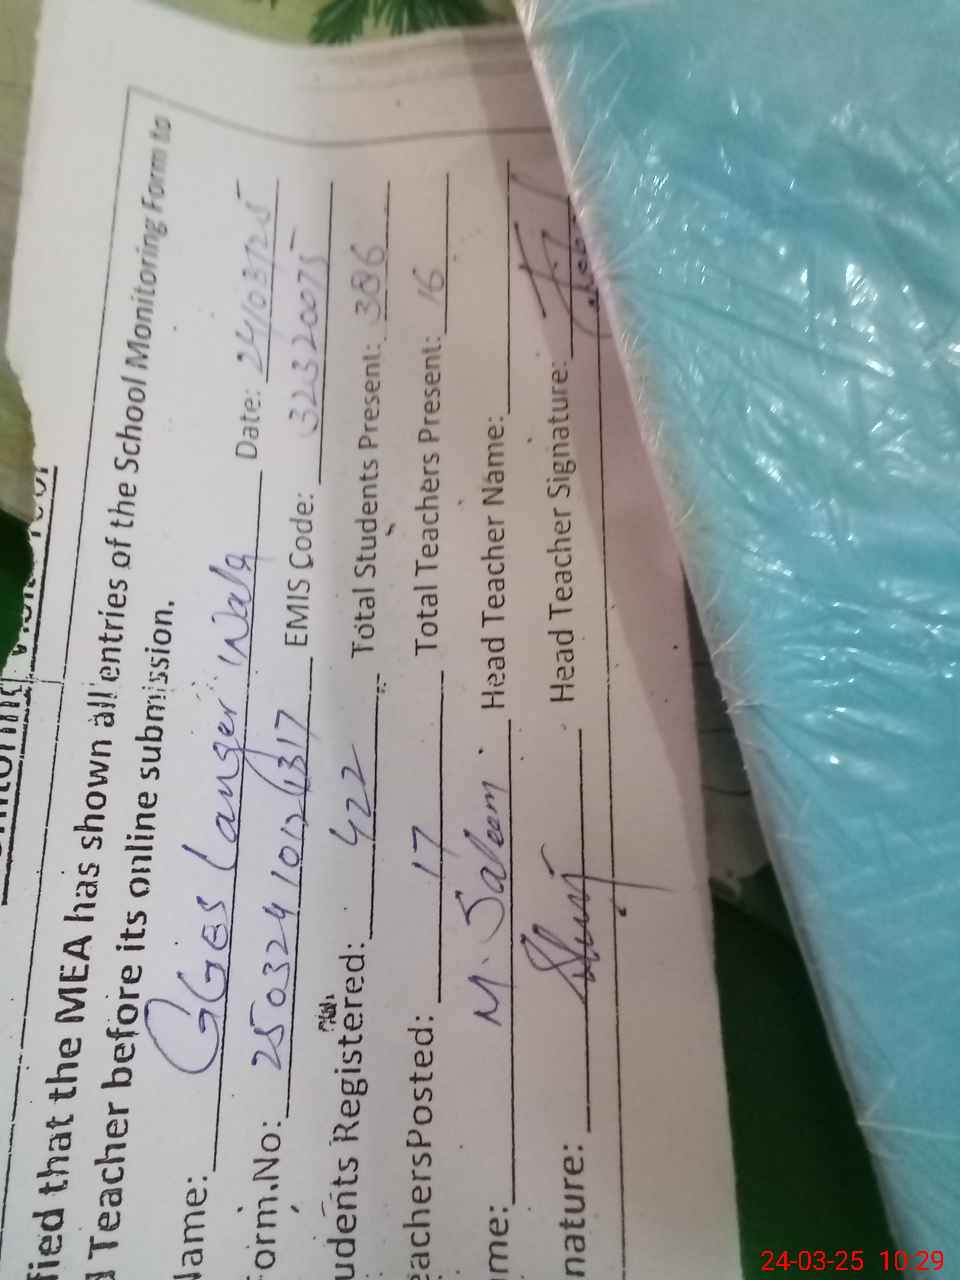 fied that the MEA has shown all entries of the School Monitoring Form to
d Teacher before its online submission.
Name: GGES Langer Wala Date: 24/03/25
Form.No: 250324 1012 1317 EMIS Code: 32320075
udents Registered: 422 Total Students Present: 386
eachersPosted: 17 Total Teachers Present: 16
me: M. Saleem Head Teacher Name:
nature: Head Teacher Signature:
24-03-25 10:29